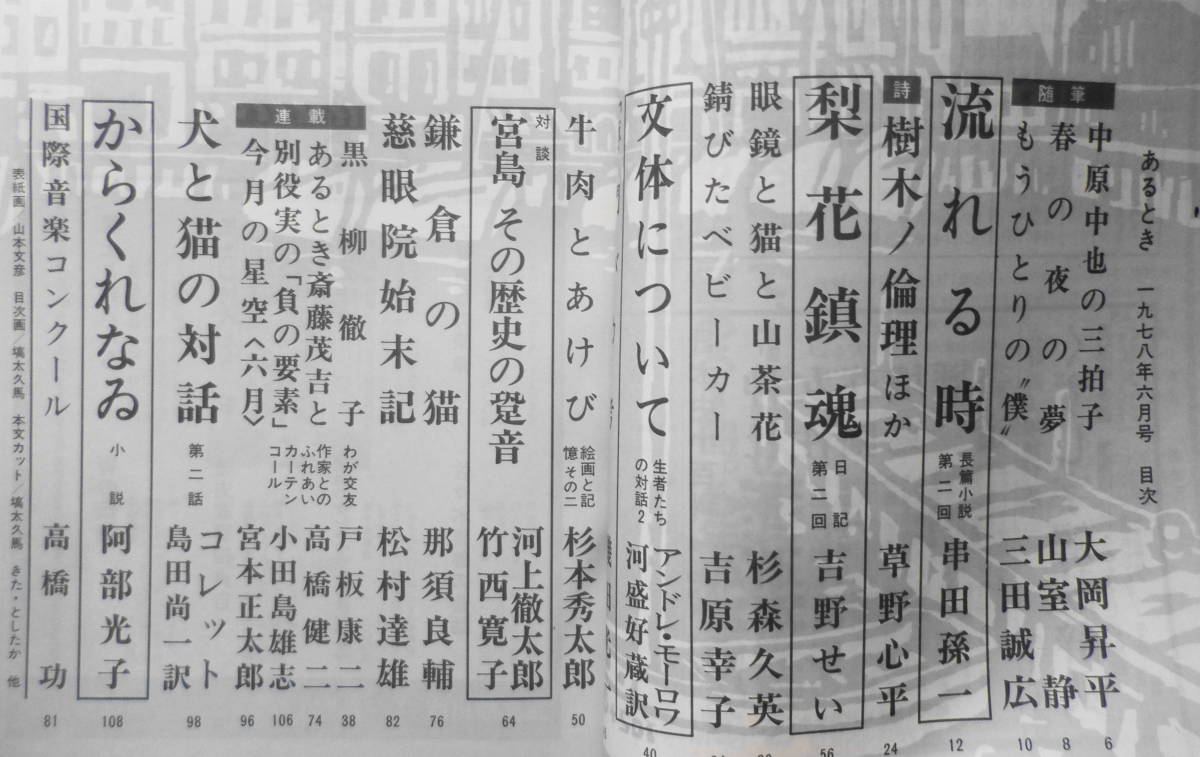 あるとき 一九七八年六月号 目次
随筆
中原中也の三拍子 大岡昇平 6
春の夜の夢 山室静 8
もうひとりの〝僕〟 三田誠広 10
流れる時 長篇小説 第二回 串田孫一 12
詩
樹木ノ倫理ほか 草野心平 24
梨花鎮魂 日記 第二回 吉野せい 56
眼鏡と猫と山茶花 杉森久英
錆びたベビーカー 吉原幸子
文体について 生者たちの対話2 アンドレ・モーロワ 河盛好蔵訳 40
牛肉とあけび 絵画と記憶その二 杉本秀太郎 50
対談
宮島 その歴史の跫音 河上徹太郎 竹西寛子 64
鎌倉の猫 那須良輔 76
慈眼院始末記 松村達雄 82
連載
黒柳徹子 わが交友 戸板康二 38
あるとき斎藤茂吉と 作家とのふれあい 高橋健二 74
別役実の「負の要素」 カーテンコール 小田島雄志 106
今月の星空〈六月〉 宮本正太郎 96
犬と猫の対話 第二話 コレット 島田尚一訳 98
からくれなゐ 小説 阿部光子 108
国際音楽コンクール 高橋功 81
表紙画/山本文彦 目次画/塙太久馬 本文カット/塙太久馬 きた・としたか 他